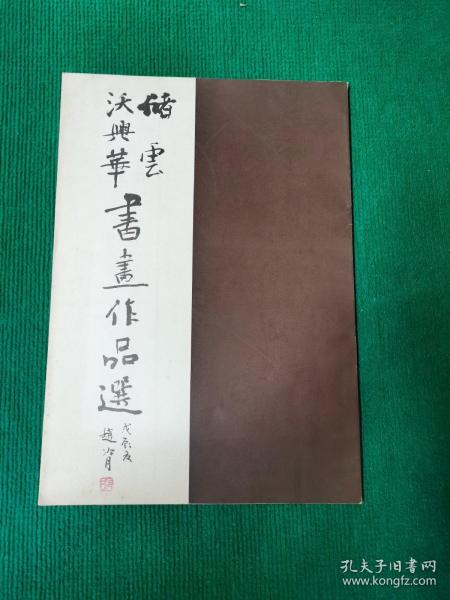 储雲
沃興華
書畫作品選
戊辰夜
趙冷月
孔夫子旧书网
www.kongfz.com